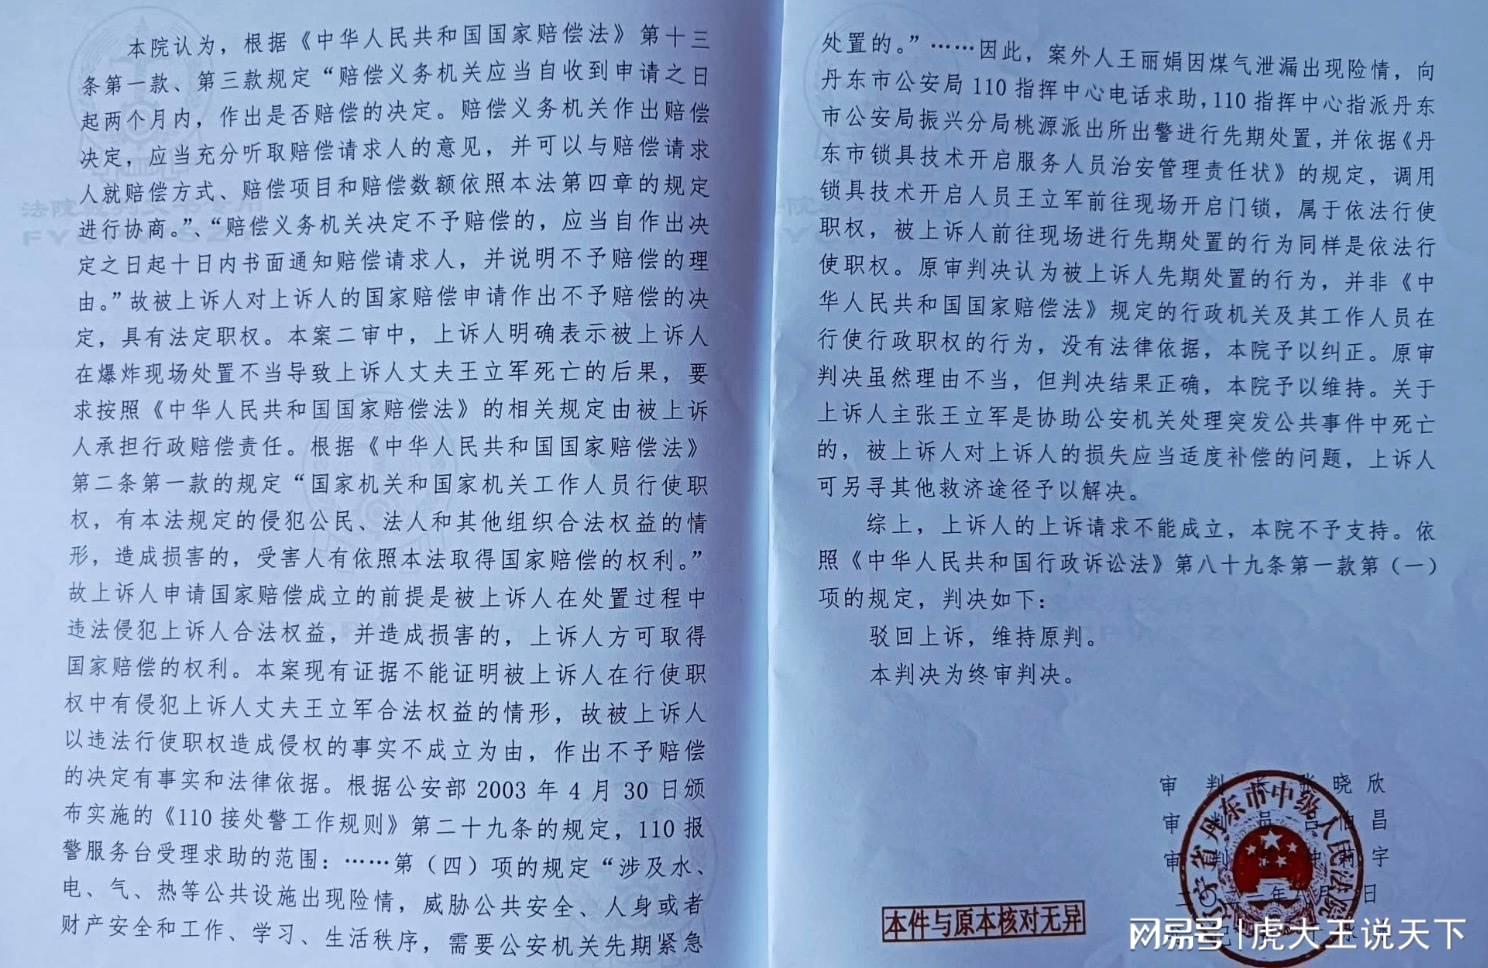 本院认为，根据《中华人民共和国国家赔偿法》第十三
条第一款、第三款规定“赔偿义务机关应当自收到申请之日
起两个月内，作出是否赔偿的决定。赔偿义务机关作出赔偿
决定，应当充分听取赔偿请求人的意见，并可以与赔偿请求
人就赔偿方式、赔偿项目和赔偿数额依照本法第四章的规定
进行协商。”、“赔偿义务机关决定不予赔偿的，应当自作出决
定之日起十日内书面通知赔偿请求人，并说明不予赔偿的理
由。”故被上诉人对上诉人的国家赔偿申请作出不予赔偿的决
定，具有法定职权。本案二审中，上诉人明确表示被上诉人
在爆炸现场处置不当导致上诉人丈夫王立军死亡的后果，要
求按照《中华人民共和国国家赔偿法》的相关规定由被上诉
人承担行政赔偿责任。根据《中华人民共和国国家赔偿法》
第二条第一款的规定“国家机关和国家机关工作人员行使职
权，有本法规定的侵犯公民、法人和其他组织合法权益的情
形，造成损害的，受害人有依照本法取得国家赔偿的权利。”
故上诉人申请国家赔偿成立的前提是被上诉人在处置过程中
违法侵犯上诉人合法权益，并造成损害的，上诉人方可取得
国家赔偿的权利。本案现有证据不能证明被上诉人在行使职
权中有侵犯上诉人丈夫王立军合法权益的情形，故被上诉人
以违法行使职权造成侵权的事实不成立为由，作出不予赔偿
的决定有事实和法律依据。根据公安部 2003 年 4 月 30 日颁
布实施的《110 接处警工作规则》第二十九条的规定，110 报
警服务台受理求助的范围：……第（四）项的规定“涉及水、
电、气、热等公共设施出现险情，威胁公共安全、人身或者
财产安全和工作、学习、生活秩序，需要公安机关先期紧急
处置的。”……因此，案外人王丽娟因煤气泄漏出现险情，向
丹东市公安局 110 指挥中心电话求助，110 指挥中心指派丹东
市公安局振兴分局桃源派出所出警进行先期处置，并依据《丹
东市锁具技术开启服务人员治安管理责任状》的规定，调用
锁具技术开启人员王立军前往现场开启门锁，属于依法行使
职权，被上诉人前往现场进行先期处置的行为同样是依法行
使职权。原审判决认为被上诉人先期处置的行为，并非《中
华人民共和国国家赔偿法》规定的行政机关及其工作人员在
行使行政职权的行为，没有法律依据，本院予以纠正。原审
判决虽然理由不当，但判决结果正确，本院予以维持。关于
上诉人主张王立军是协助公安机关处理突发公共事件中死亡
的，被上诉人对上诉人的损失应当适度补偿的问题，上诉人
可另寻其他救济途径予以解决。
综上，上诉人的上诉请求不能成立，本院不予支持。依
照《中华人民共和国行政诉讼法》第八十九条第一款第（一）
项的规定，判决如下：
驳回上诉，维持原判。
本判决为终审判决。
审 判 长 张 晓 欣
审 员 昌
审 宇
年 月 日
本件与原本核对无异
省丹东市中级人民法院
网易号 | 虎大王说天下